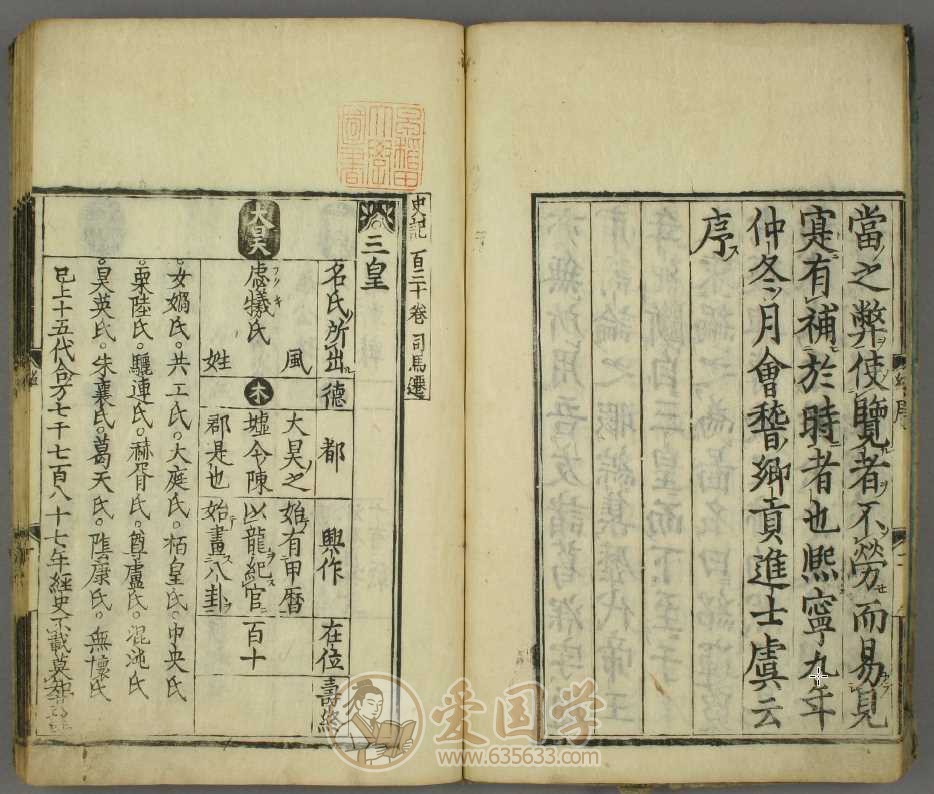 當之弊使覽者不勞而易見
寔有補於時者也熙寧九年
仲冬月會稽鄉貢進士虞云
序ス
史記 百三十卷 司馬遷
三皇
名氏所出 德 都 興作 在位 壽終
大昊
虙犧氏 風姓
木
大昊之墟今陳郡是也
始有甲曆以龍紀官始畫八卦
百十
女媧氏○共工氏○大庭氏○栢皇氏○中央氏
栗陸氏○驪連氏○赫胥氏○尊盧氏○混沌氏
昊英氏○朱襄氏○葛天氏○陰康氏○無懷氏
已上十五代合万七千七百八十七年經史不載莫知
早稲田大學圖書
爱国学
www.635633.com